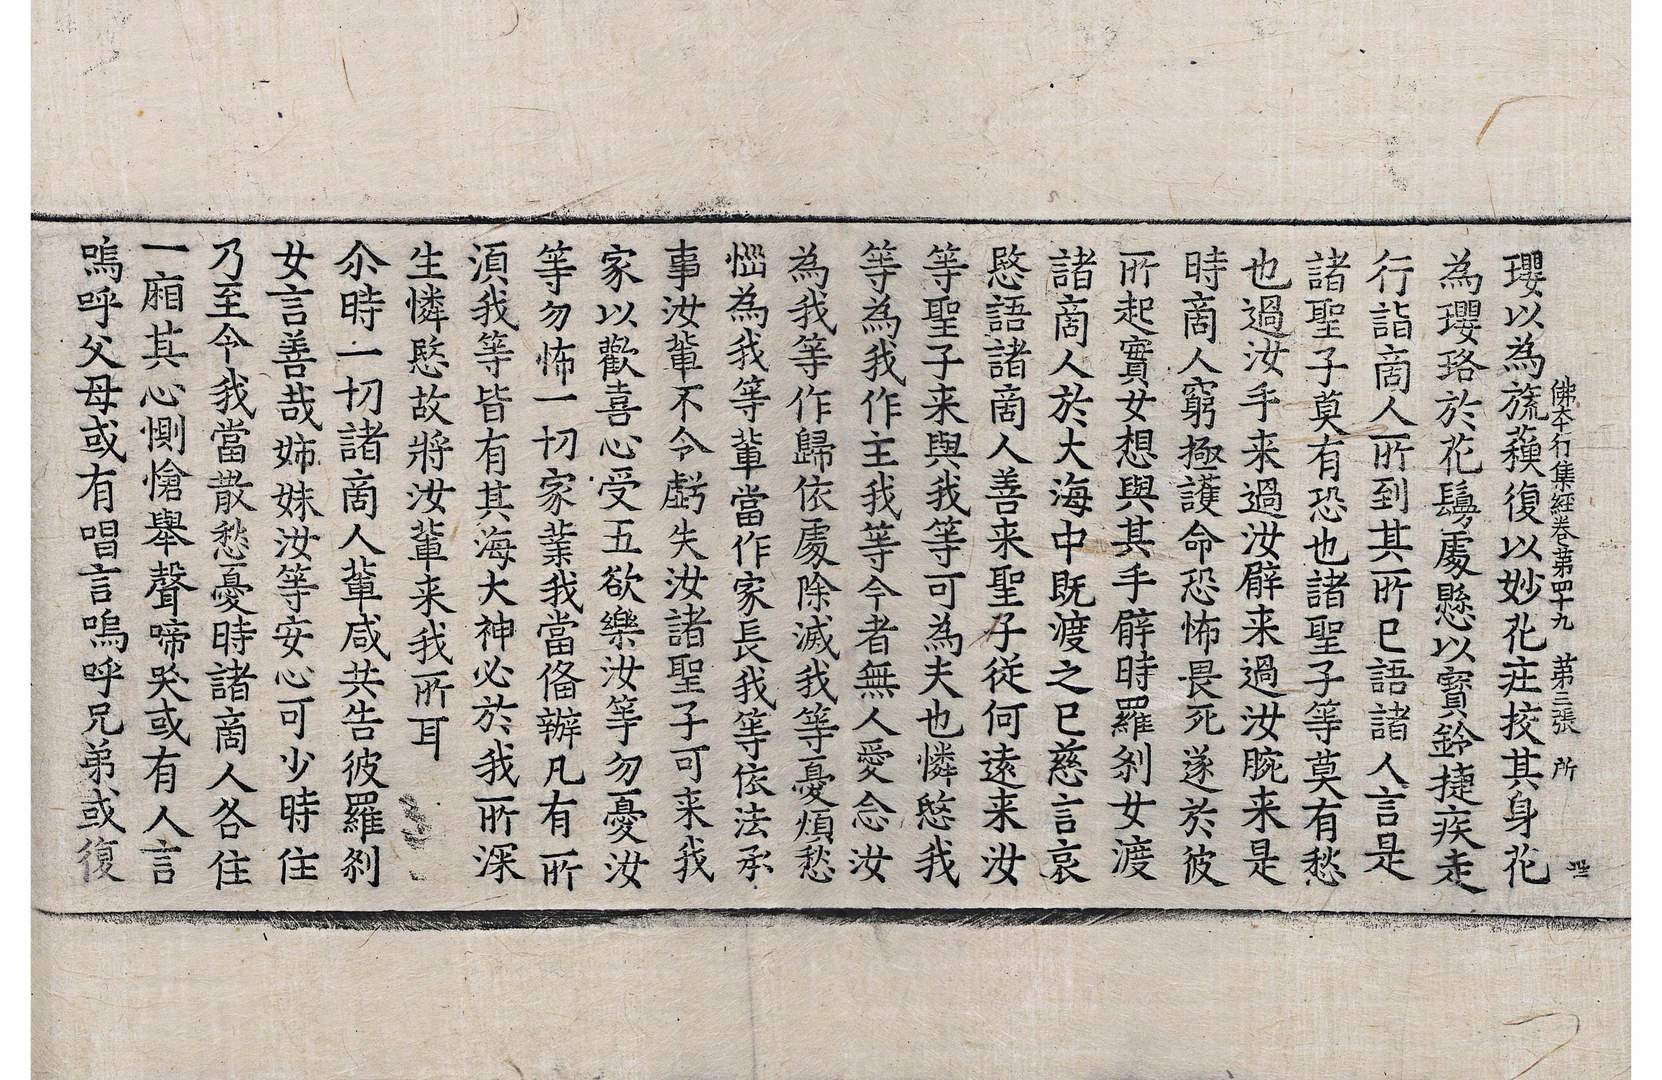 佛本行集經卷第四十九 第三張 所
瓔以為旒蘓復以妙花庄挍其身花
為瓔珞於花鬘處懸以寳鈴捷疾走
行詣啇人所到其所巳語諸人言是
諸聖子莫有恐也諸聖子等莫有愁
也過汝手来過汝臂来過汝腕来是
時啇人窮極護命恐怖畏死遂於彼
所起實女想與其手臂時羅刹女渡
諸啇人於大海中既渡之巳慈言哀
愍語諸啇人善来聖子従何遠来汝
等聖子来與我等可為夫也憐愍我
等為我作主我等今者無人愛念汝
為我等作歸依處除滅我等憂煩愁
惱為我等輩當作家長我等依法承
事汝輩不令虧失汝諸聖子可来我
家以歡喜心受五欲樂汝等勿憂汝
等勿怖一切家業我當俻辦凡有所
湏我等皆有其海大神必於我所深
生憐愍故將汝輩来我所耳
尒時一切諸啇人輩咸共告彼羅刹
女言善哉姊妹汝等安心可少時住
乃至今我當散愁憂時諸啇人各住
一廂其心惻愴舉聲啼哭或有人言
嗚呼父母或有唱言嗚呼兄弟或復